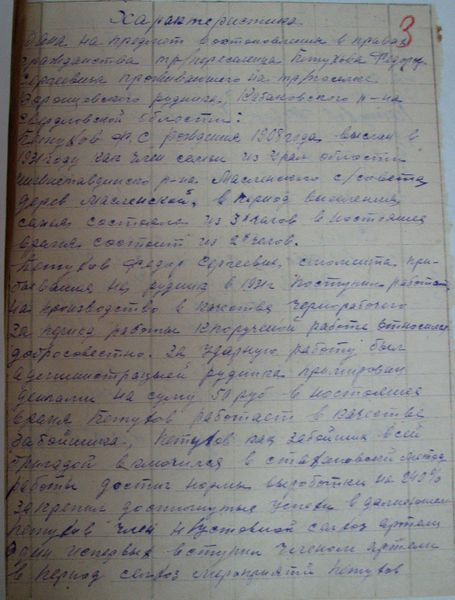 Характеристика
3
Дана на предмет востоновления в правах
гражданства тр/переселенца Петухова Федора
Сергеевича проживающего на тр/поселке
рудника, р-на
Свердловской области:
Петухов Ф.С рождения 1908 года выслан в
1931 году как член семьи из Урал области
р-на Маслянского с/совета
дерев Маслянской, в период выселения
семья состояла из 3х чалов в настоящее
время состоит из 2х челов.
Петухов Федор Сергеевич с момента при-
бывания на рудник в 1931г поступил работать
на производство в качестве чернорабочего
За период работы к порученой работе относился
добросовестно. За ударную работу был
администрацией рудника премирован
деньгами на сумму 50 руб в настоящее
время Петухов работает в качестве
забойщика, Петухов как забойщик всей
бригадой включился в стахановский метод
работы достиг нормы выработки на 240%
закрепил достигнутые успехи в дальнейшем
Петухов член Неуставной сельхоз артели
Один из первых вступил членом артели
в период сельхоз мероприятй Петухов